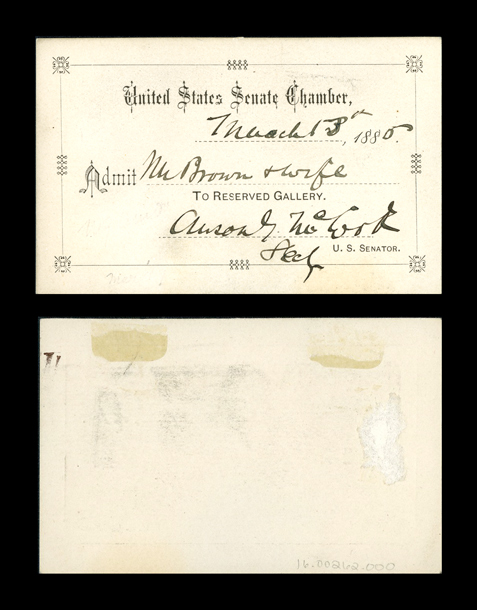 United States Senate Chamber,
March 13th, 1885.
Admit Mr Brown & wife
To Reserved Gallery.
Anson G. McCook
Secy U. S. Senator.
16.00262.000